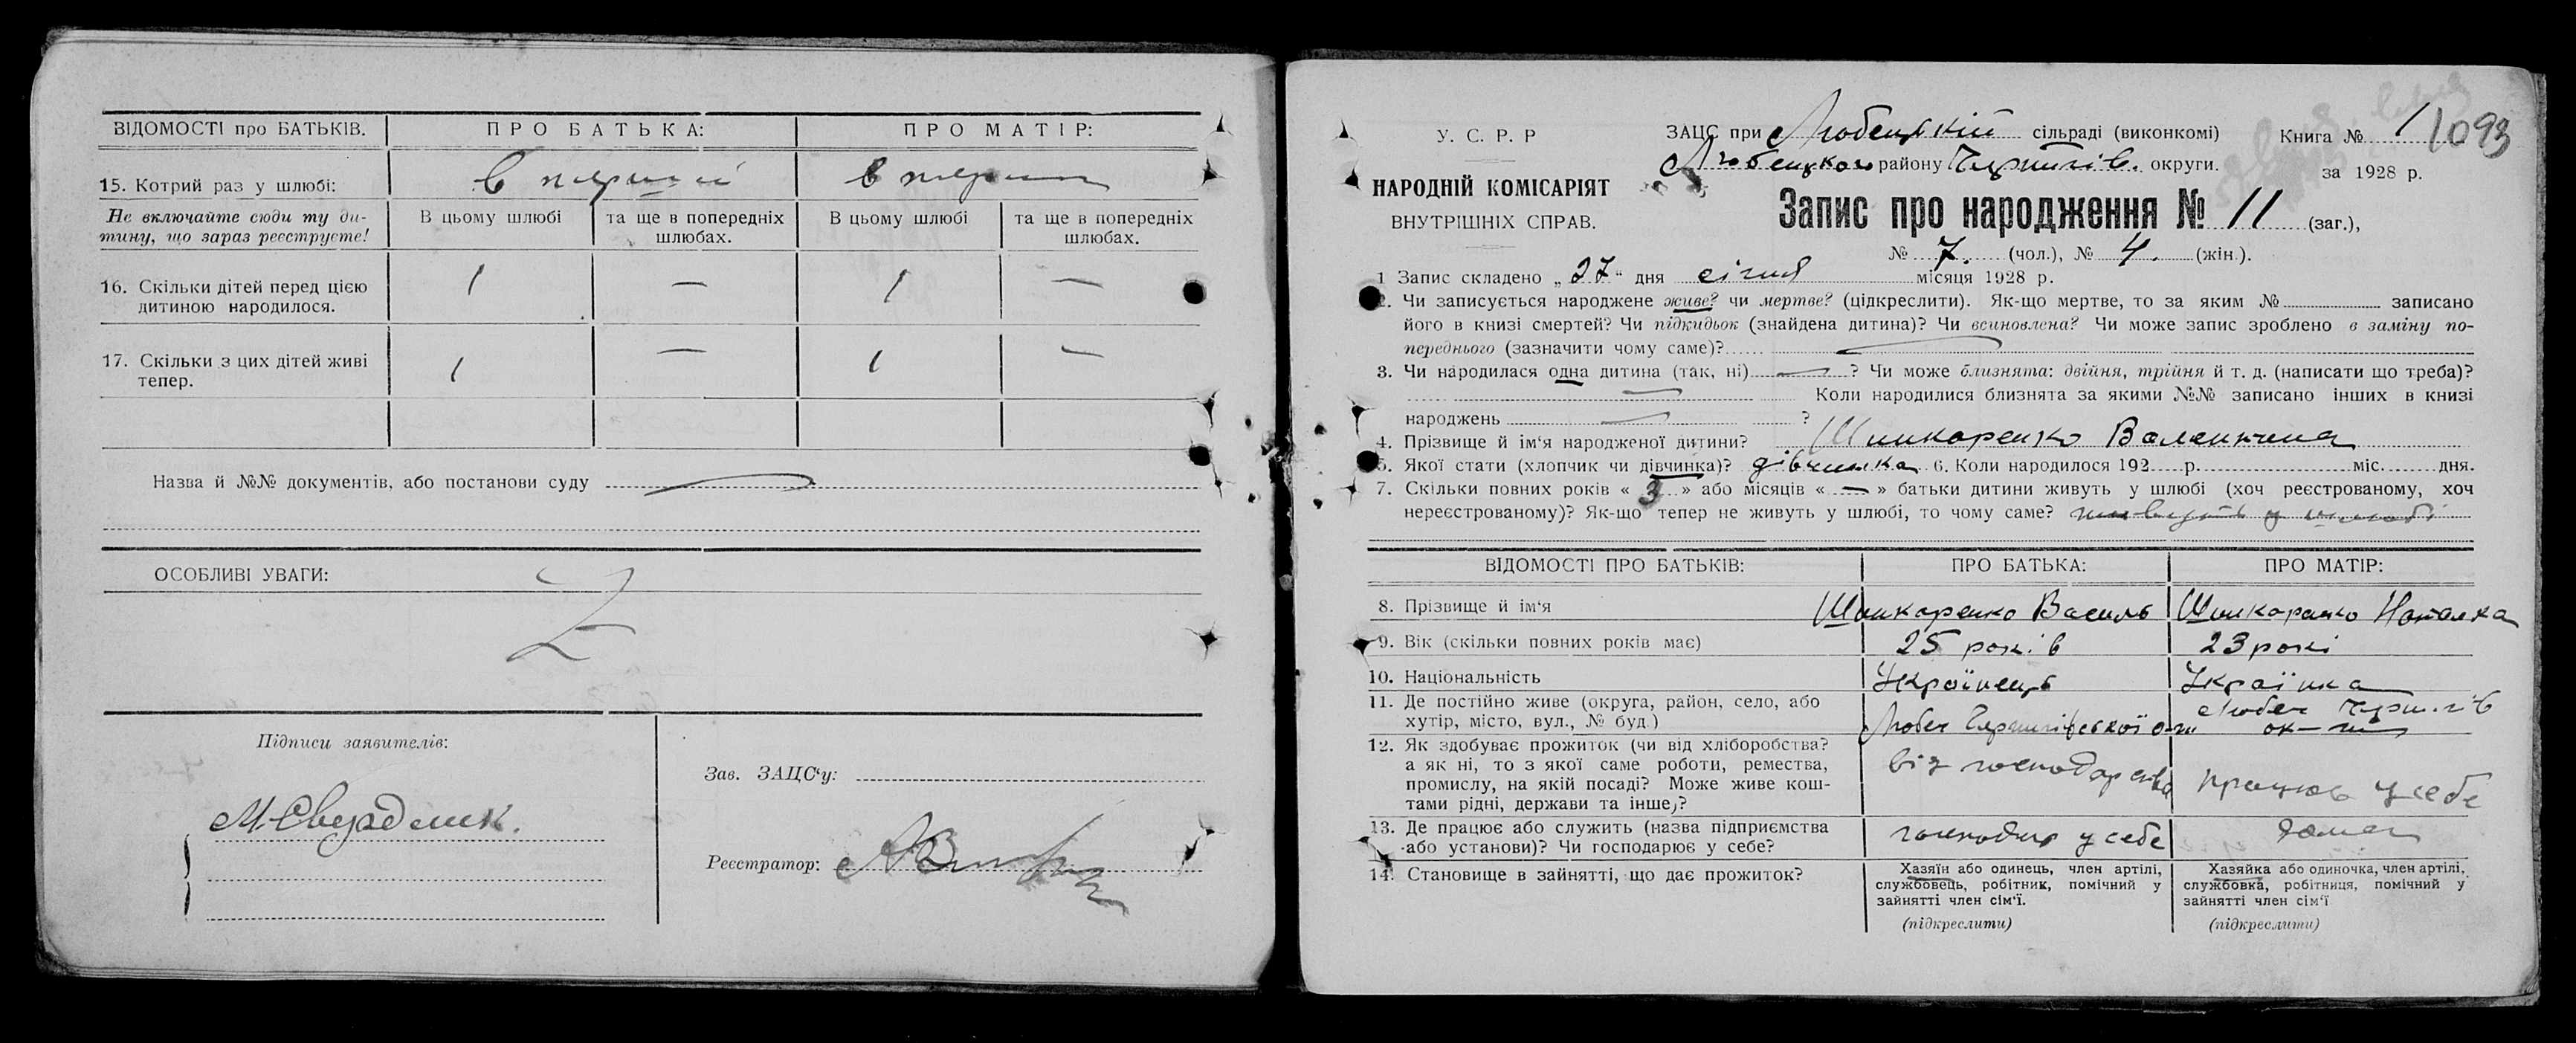 ВІДОМОСТІ про БАТЬКІВ. ПРО БАТЬКА: ПРО МАТІР:
15. Котрий раз у шлюбі: в перший в перший
Не включайте сюди ту ди-
тину, що зараз реєструєте!
В цьому шлюбі та ще в попередніх шлюбах. В цьому шлюбі та ще в попередніх шлюбах.
16. Скільки дітей перед цією
дитиною народилося. 1 — 1 —
17. Скільки з цих дітей живі
тепер. 1 — 1 —
Назва й №№ документів, або постанови суду
ОСОБЛИВІ УВАГИ:
Z
Підписи заявителів:
Зав. ЗАЦС‘у:
Реєстратор:
У. С. Р. Р
НАРОДНІЙ КОМІСАРІЯТ
ВНУТРІШНІХ СПРАВ.
ЗАЦС при Любецькій сільраді (виконкомі)
Любецкого району Чернигів. округи.
Книга № 1 1093
за 1928 р.
Запис про народження № 11 (заг.),
№ 7. (чол.), № 4. (жін.).
1 Запис складено „27“ дня січня місяця 1928 р.
2. Чи записується народжене живе? чи мертве? (цідкреслити). Як-що мертве, то за яким № записано
його в книзі смертей? Чи підкидьок (знайдена дитина)? Чи всиновлена? Чи може запис зроблено в заміну по-
переднього (зазначити чому саме)?
3. Чи народилася одна дитина (так, ні) — ? Чи може близнята: двійня, трійня й т. д. (написати що треба)?
— Коли народилися близнята за якими №№ записано інших в книзі
народжень — ?
4. Прізвище й ім‘я народженої дитини? Шинкаренко Валентина
5. Якої стати (хлопчик чи дівчинка)? дівчинка 6. Коли народилося 192 р. міс. дня.
7. Скільки повних років « 3 » або місяців « — » батьки дитини живуть у шлюбі (хоч реєстрованому, хоч
нереєстрованому)? Як-що тепер не живуть у шлюбі, то чому саме? живуть у шлюбі
ВІДОМОСТІ ПРО БАТЬКІВ: ПРО БАТЬКА: ПРО МАТІР:
8. Прізвище й ім‘я Шинкаренко Василь Шинкаренко Наталка
9. Вік (скільки повних років має) 25 років 23 рокі
10. Національність Українець Українка
11. Де постійно живе (округа, район, село, або
хутір, місто, вул., № буд.) Любеч Чернигівської Любеч Черниг.
12. Як здобуває прожиток (чи від хліборобства?
а як ні, то з якої саме роботи, ремества,
промислу, на якій посаді? Може живе кош-
тами рідні, держави та інше,)? від господарства працює у себе
13. Де працює або служить (назва підприємства
або установи)? Чи господарює у себе? господар у себе дома
14. Становище в зайнятті, що дає прожиток?
Хазяїн або одинець, член артілі,
службовець, робітник, помічний у
зайнятті член сім‘ї.
(підкреслити)
Хазяйка або одиночка, член артілі,
службовка, робітниця, помічний у
зайнятті член сім‘ї
(підкреслити)